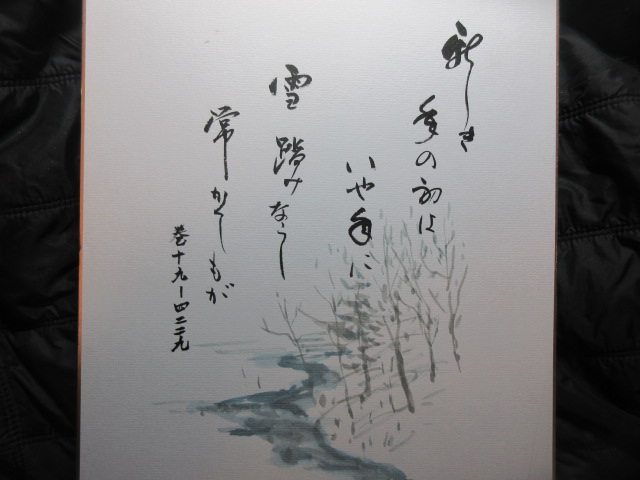 新しき
年の初は
いや年に
雪踏みならし
常かくしもが
巻十九－四二二九